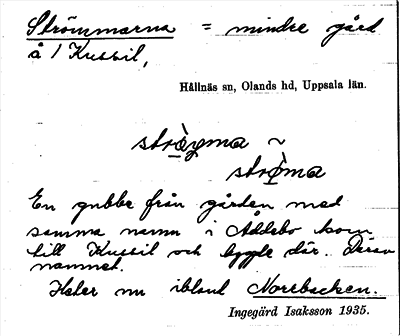 Strömmarna = mindre gård
å / Kussil,
Hållnäs sn, Olands hd, Uppsala län.
~
En gubbe från gården med
samma namn i Ådlebo kom
till Kussil och bygde där. Därav
namnet.
Heter nu ibland Norrbacken.
Ingegärd Isaksson 1935.